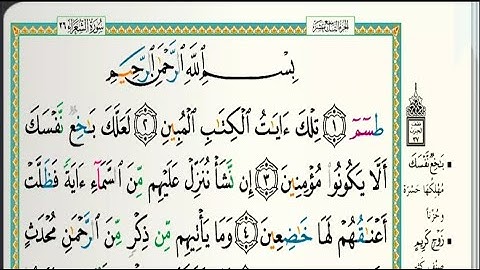 سورة الشعراء ٢٦
الجزء التاسع عشر
بِسْمِ ٱللَّهِ ٱلرَّحْمَٰنِ ٱلرَّحِيمِ
طسٓمٓ ١ تِلْكَ ءَايَٰتُ ٱلْكِتَٰبِ ٱلْمُبِينِ ٢ لَعَلَّكَ بَٰخِعٌ نَّفْسَكَ
أَلَّا يَكُونُوا۟ مُؤْمِنِينَ ٣ إِن نَّشَأْ نُنَزِّلْ عَلَيْهِم مِّنَ ٱلسَّمَآءِ ءَايَةً فَظَلَّتْ
أَعْنَٰقُهُمْ لَهَا خَٰضِعِينَ ٤ وَمَا يَأْتِيهِم مِّن ذِكْرٍ مِّنَ ٱلرَّحْمَٰنِ مُحْدَثٍ
٣٧
بَٰخِعٌ نَّفْسَكَ
مُهْلِكُهَا حَسْرَةً
وَحُزْنًا
زَوْجٍ كَرِيمٍ